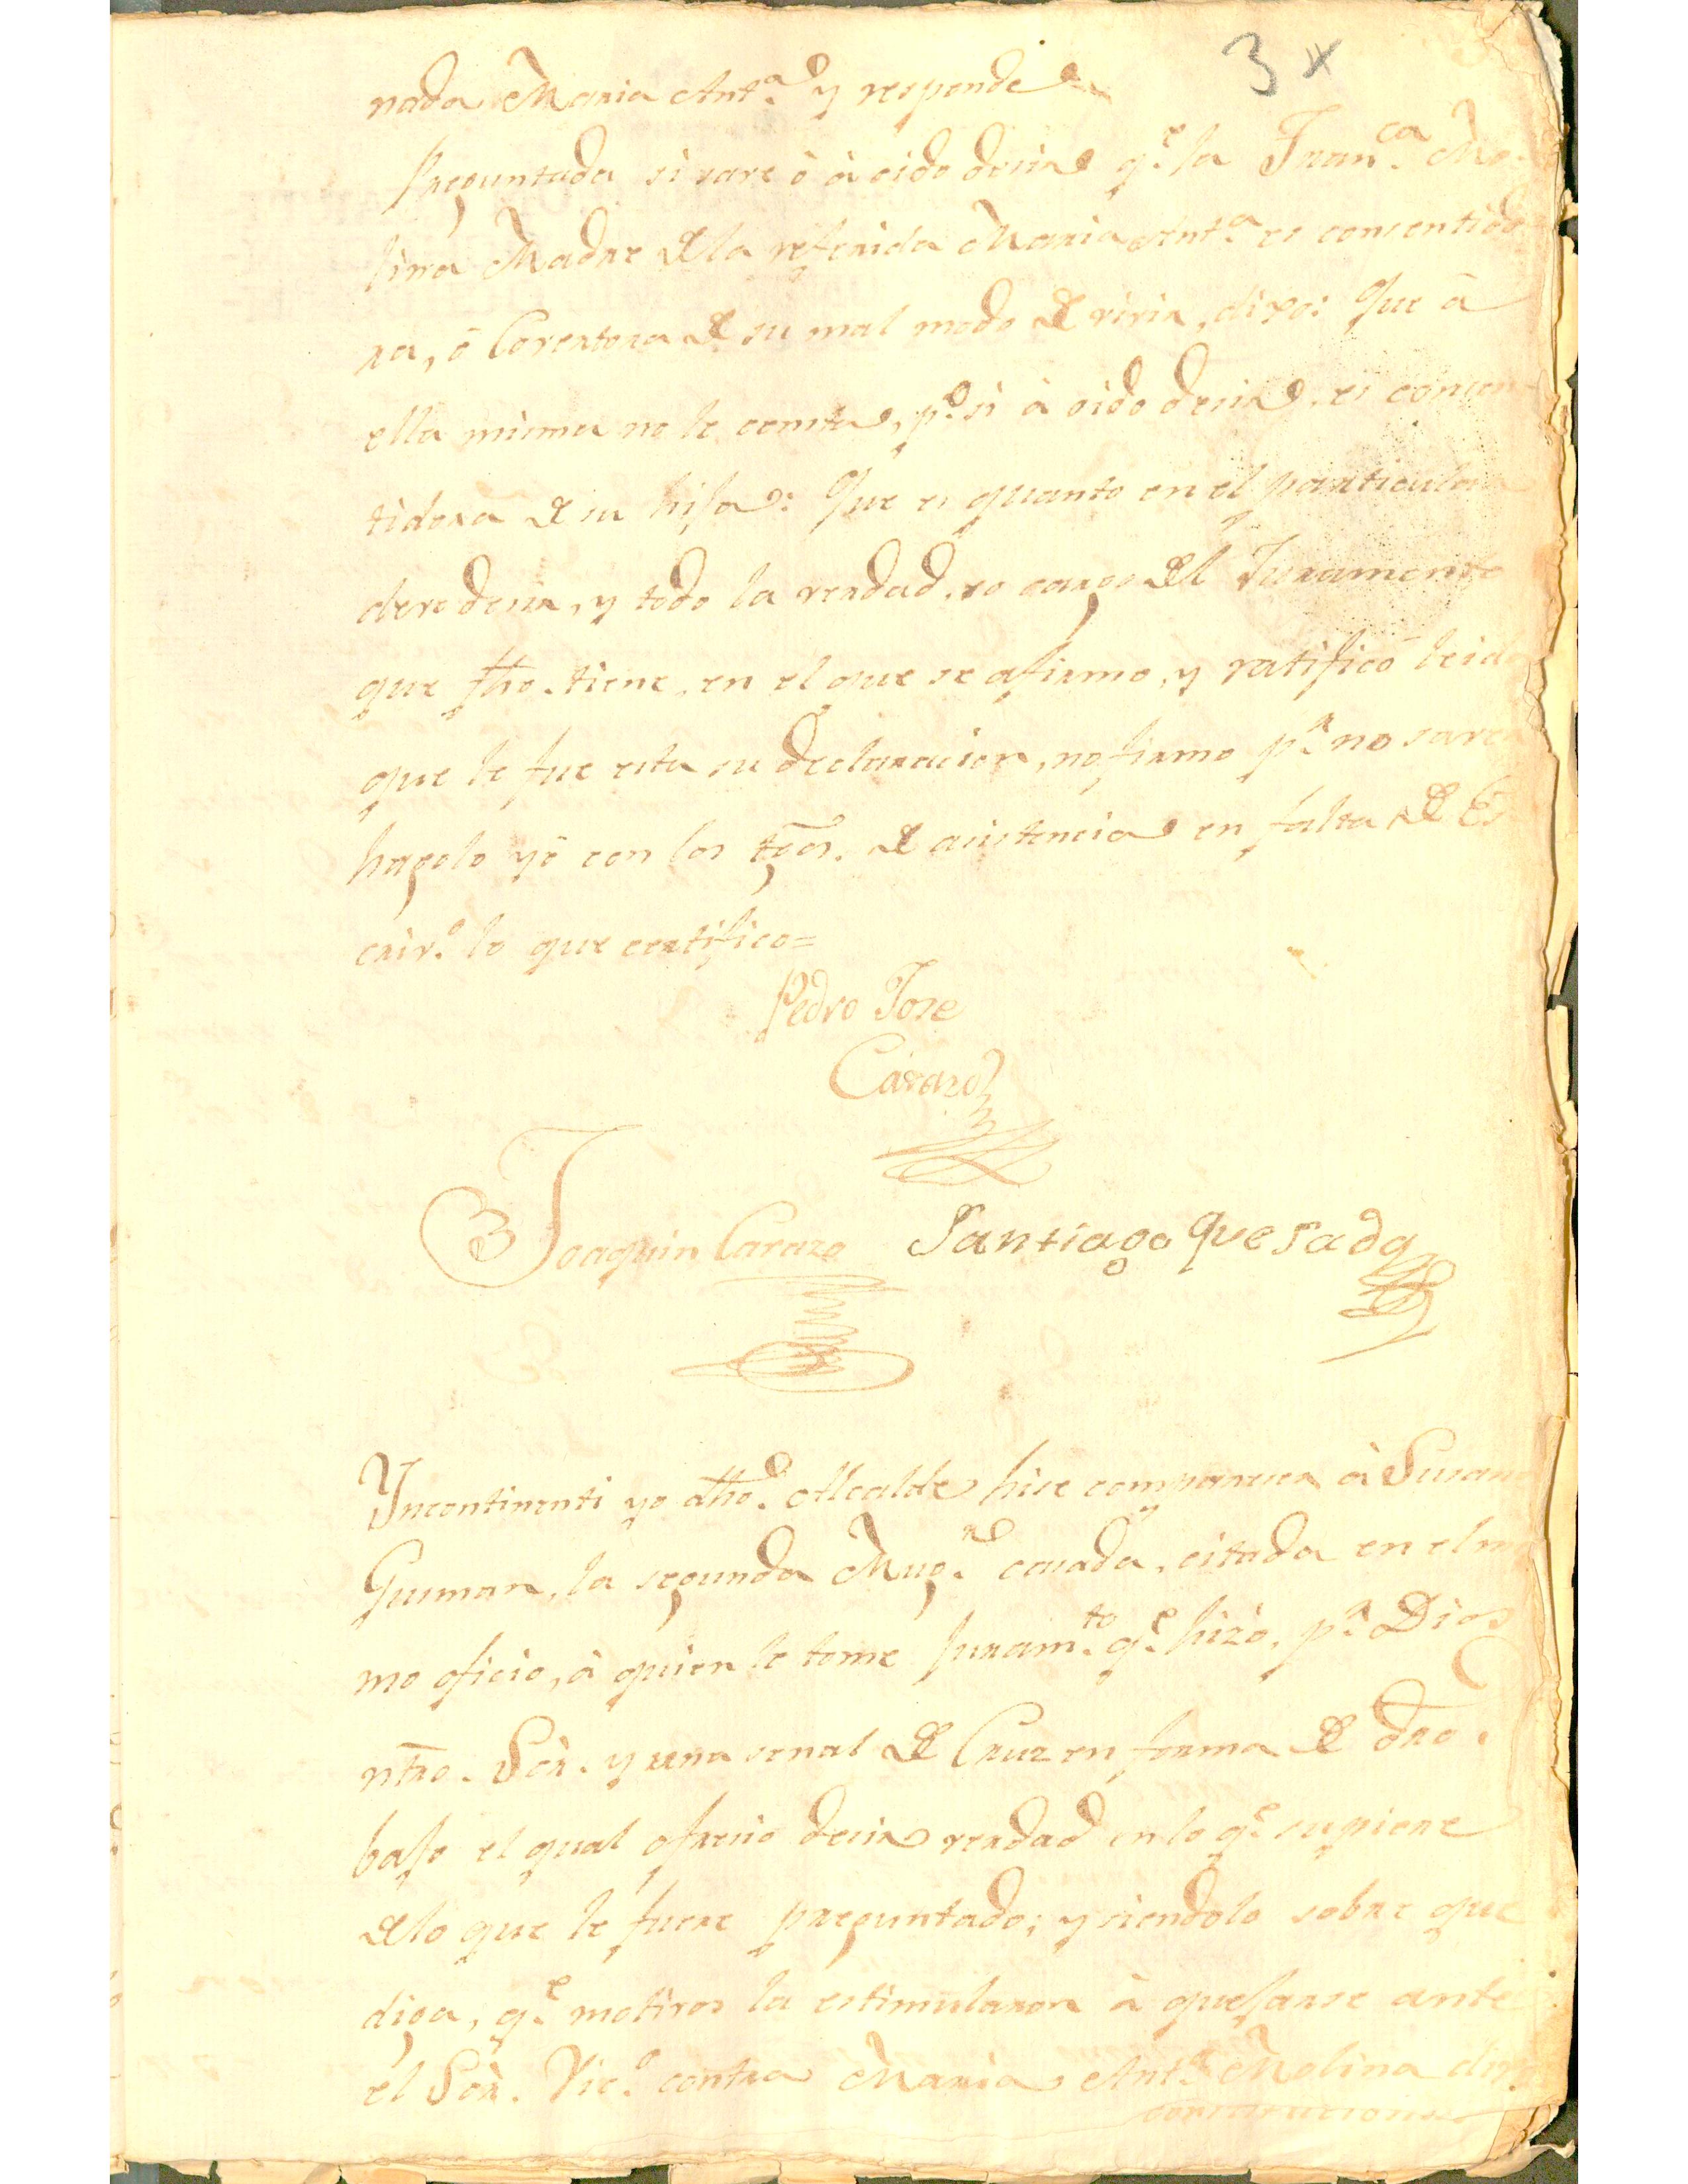 3 x
nada Maria Ant.ª y responde
Preguntada si save ò à oido desir q.e la Fran.ca Mo-
lina Madre de la referida Maria Ant.ª es consentido
ra, ò Covertora de su mal modo de vivir, dixo: Que à
ella misma no le consta, p.o si à oido desir es consen
tidora de su hija: Que es quanto en el particular
deve desir, y todo la verdad, so cargo del Juramento
que fho. tiene, en el que se afirmo, y ratificò leida
que le fue esta su declaracion, no firmo p.r no saver
hagolo yò con los tgos. de asistencia en falta de Es
criv.o lo que certifico=
Pedro Jose
Carazo
Joaquin Carazo Santiago Quesada
Yncontinenti yo dho. Alcalde hise comparecer à Susana
Gusman, la segunda Mug.r casada, citada en el mis
mo oficio, à quien le tome juram.to q.e hizò, p.r Dios
ntro. Sòr. y una señal de Cruz en forma de dro.
bajo el qual ofresio desir verdad en lo q.e supiere
de lo que le fuere preguntado; y siendolo sobre que
diga, q.e motivos la estimularon à quejarse ante
el Sòr. Vic.o contra Maria Ant.ª Molina dixo